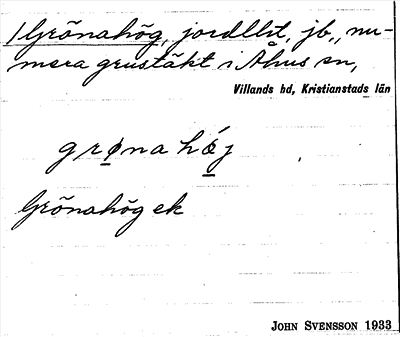 /Grönahög, jordllit, jb., nu-
mera grustäkt i Åhus sn,
Villands hd, Kristianstads län
grønahǿj
Grönahög ek
JOHN SVENSSON 1933